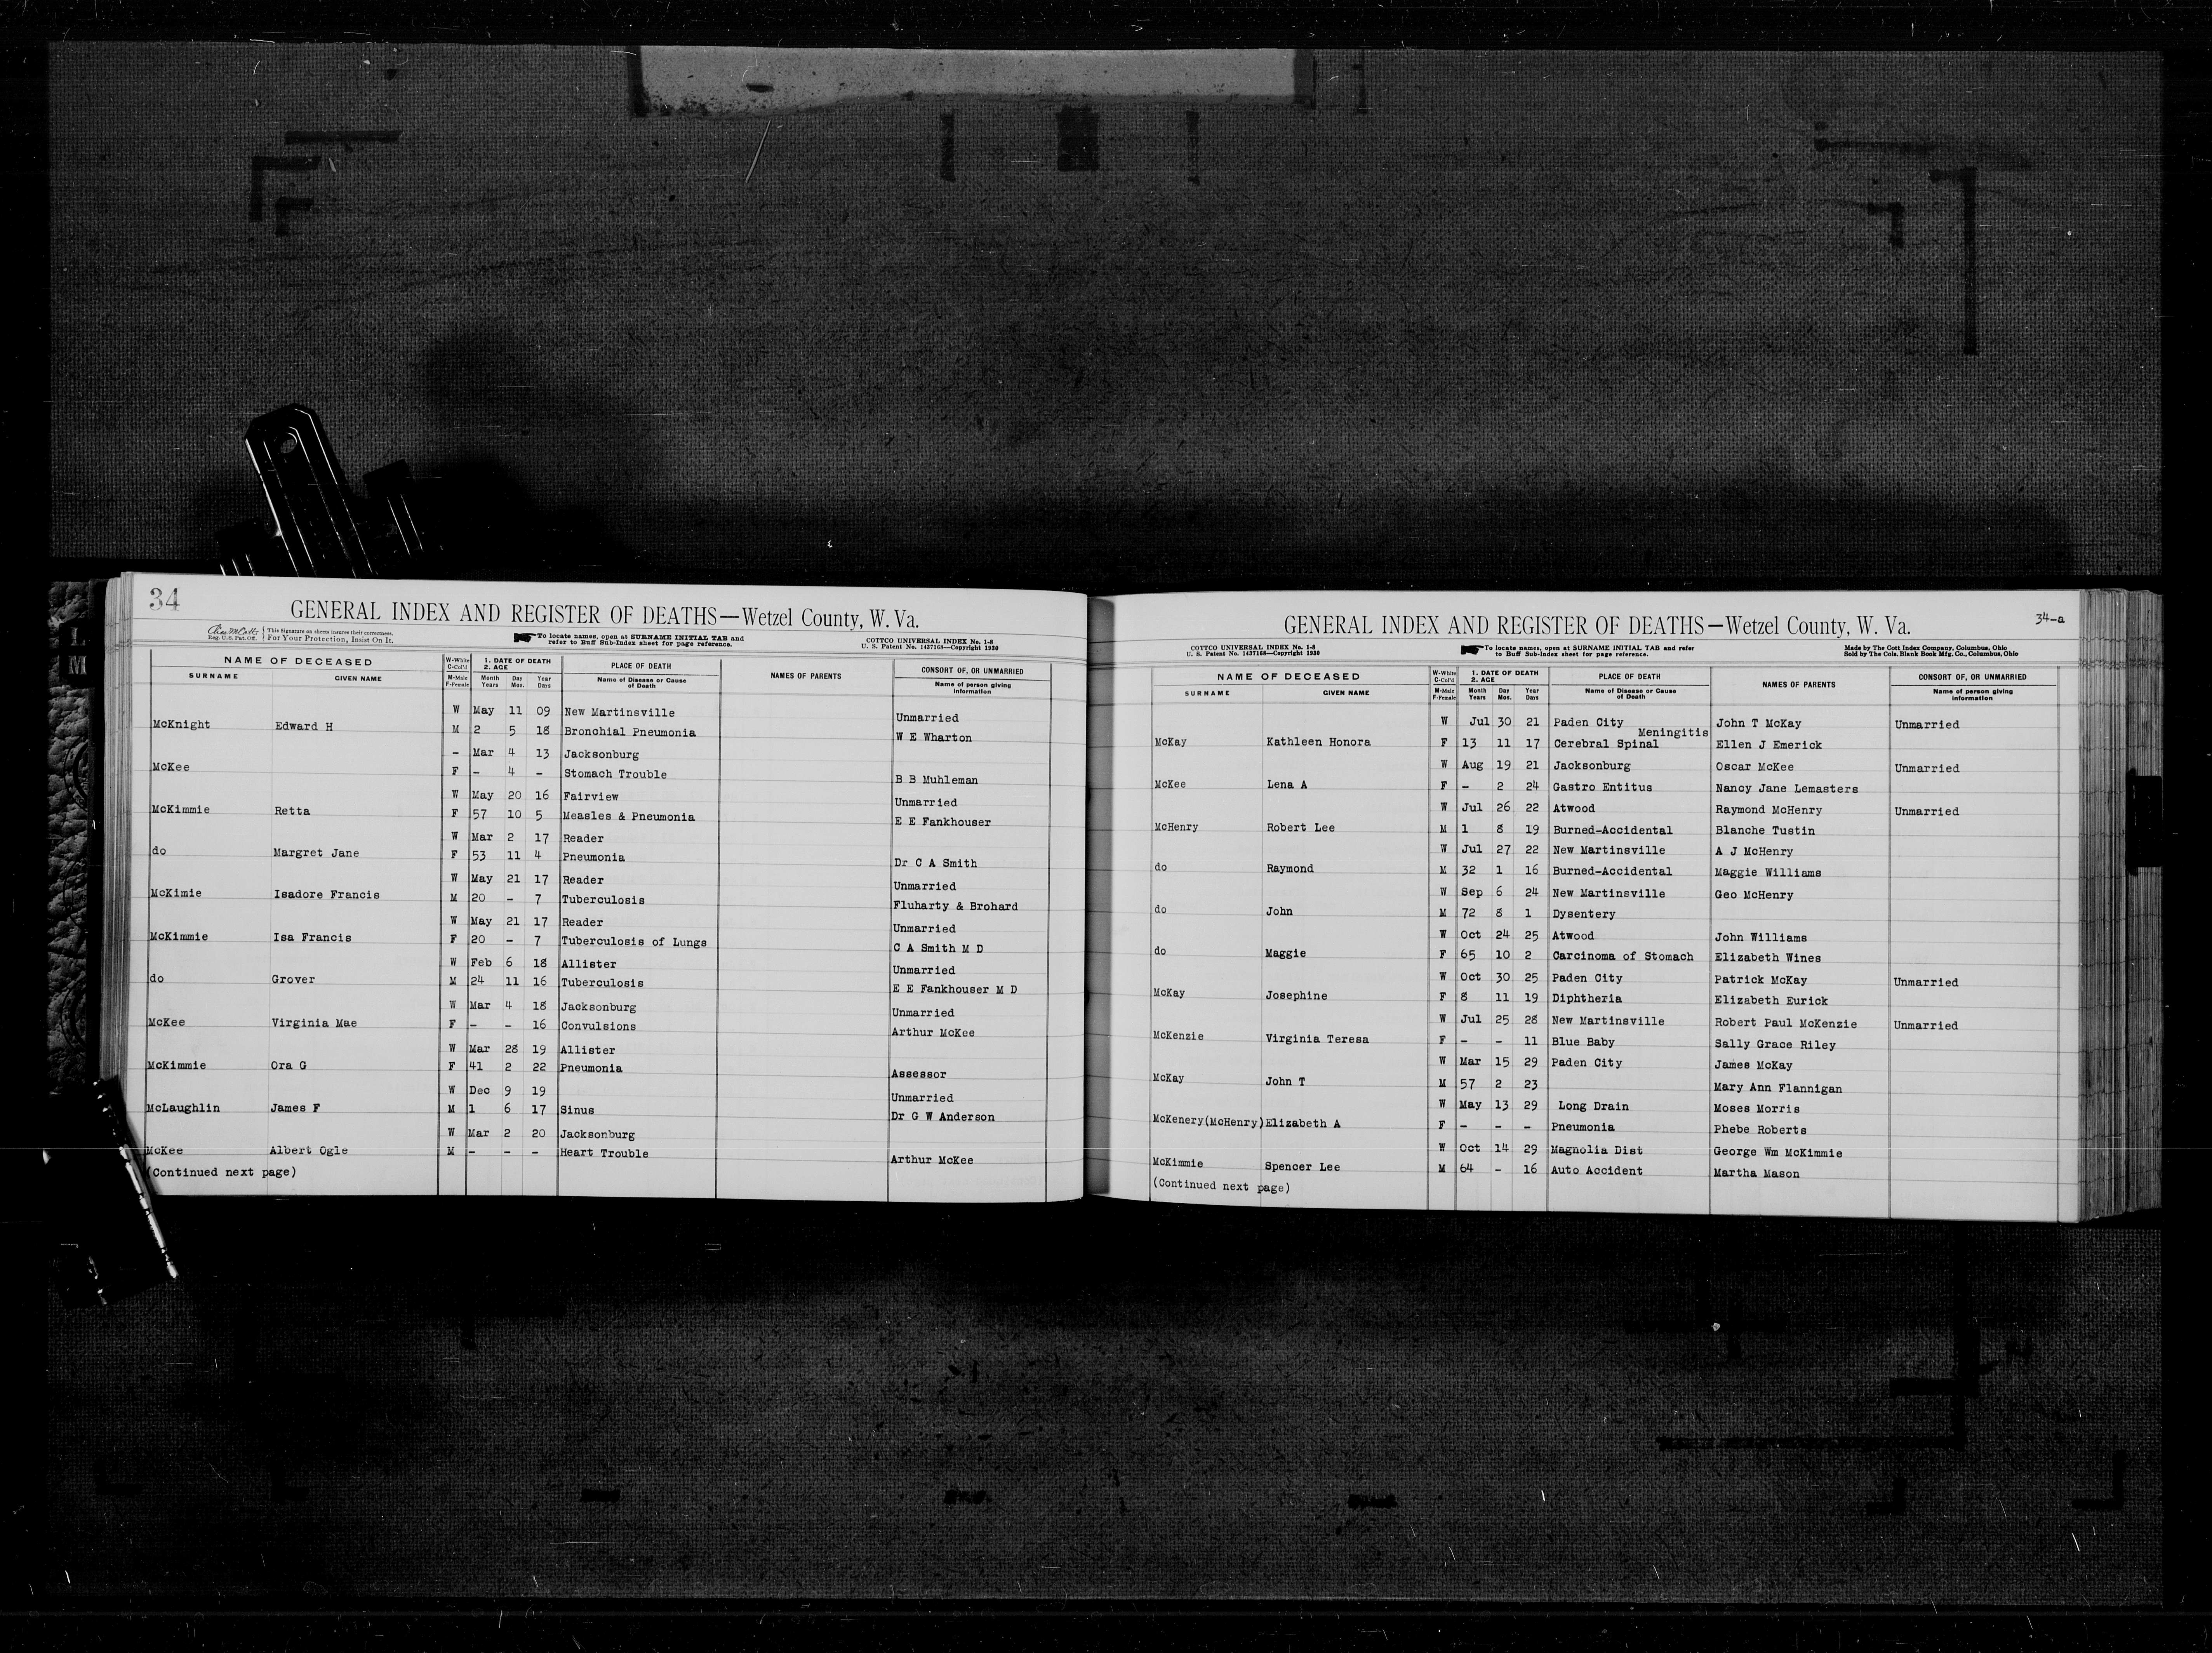 34
GENERAL INDEX AND REGISTER OF DEATHS—Wetzel County, W. Va.
Reg. U.S. Pat. Off. This Signature on sheets insures their correctness. For Your Protection, Insist On It.
To locate names, open at SURNAME INITIAL TAB and refer to Buff Sub-Index sheet for page reference.
COTTCO UNIVERSAL INDEX No. 1-8
U. S. Patent No. 1437168—Copyright 1930
NAME OF DECEASED W-White C-Col'd 1. DATE OF DEATH 2. AGE PLACE OF DEATH NAMES OF PARENTS CONSORT OF, OR UNMARRIED
SURNAME GIVEN NAME M-Male F-Female Month Years Day Mos. Year Days Name of Disease or Cause of Death Name of person giving information
W May 11 09 New Martinsville Unmarried
McKnight Edward H M 2 5 18 Bronchial Pneumonia W E Wharton
- Mar 4 13 Jacksonburg
McKee F - 4 - Stomach Trouble B B Muhleman
W May 20 16 Fairview Unmarried
McKimmie Retta F 57 10 5 Measles & Pneumonia E E Fankhouser
W Mar 2 17 Reader
do Margret Jane F 53 11 4 Pneumonia Dr C A Smith
W May 21 17 Reader Unmarried
McKimie Isadore Francis M 20 - 7 Tuberculosis Fluharty & Brohard
W May 21 17 Reader Unmarried
McKimmie Isa Francis F 20 - 7 Tuberculosis of Lungs C A Smith M D
W Feb 6 18 Allister Unmarried
do Grover M 24 11 16 Tuberculosis E E Fankhouser M D
W Mar 4 18 Jacksonburg Unmarried
McKee Virginia Mae F - - 16 Convulsions Arthur McKee
W Mar 28 19 Allister
McKimmie Ora G F 41 2 22 Pneumonia Assessor
W Dec 9 19 Unmarried
McLaughlin James F M 1 6 17 Sinus Dr G W Anderson
W Mar 2 20 Jacksonburg
McKee Albert Ogle M - - - Heart Trouble Arthur McKee
(Continued next page)
34-a
GENERAL INDEX AND REGISTER OF DEATHS—Wetzel County, W. Va.
COTTCO UNIVERSAL INDEX No. 1-8
U. S. Patent No. 1437168—Copyright 1930
To locate names, open at SURNAME INITIAL TAB and refer to Buff Sub-Index sheet for page reference.
Made by The Cott Index Company, Columbus, Ohio
Sold by The Cols. Blank Book Mfg. Co., Columbus, Ohio
NAME OF DECEASED W-White C-Col'd 1. DATE OF DEATH 2. AGE PLACE OF DEATH NAMES OF PARENTS CONSORT OF, OR UNMARRIED
SURNAME GIVEN NAME M-Male F-Female Month Years Day Mos. Year Days Name of Disease or Cause of Death Name of person giving information
W Jul 30 21 Paden City John T McKay Unmarried
Meningitis
McKay Kathleen Honora F 13 11 17 Cerebral Spinal Ellen J Emerick
W Aug 19 21 Jacksonburg Oscar McKee Unmarried
McKee Lena A F - 2 24 Gastro Entitus Nancy Jane Lemasters
W Jul 26 22 Atwood Raymond McHenry Unmarried
McHenry Robert Lee M 1 8 19 Burned-Accidental Blanche Tustin
W Jul 27 22 New Martinsville A J McHenry
do Raymond M 32 1 16 Burned-Accidental Maggie Williams
W Sep 6 24 New Martinsville Geo McHenry
do John M 72 8 1 Dysentery
W Oct 24 25 Atwood John Williams
do Maggie F 65 10 2 Carcinoma of Stomach Elizabeth Wines
W Oct 30 25 Paden City Patrick McKay Unmarried
McKay Josephine F 8 11 19 Diphtheria Elizabeth Eurick
W Jul 25 28 New Martinsville Robert Paul McKenzie Unmarried
McKenzie Virginia Teresa F - - 11 Blue Baby Sally Grace Riley
W Mar 15 29 Paden City James McKay
McKay John T M 57 2 23 Mary Ann Flannigan
W May 13 29 Long Drain Moses Morris
McKenery(McHenry) Elizabeth A F - - - Pneumonia Phebe Roberts
W Oct 14 29 Magnolia Dist George Wm McKimmie
McKimmie Spencer Lee M 64 - 16 Auto Accident Martha Mason
(Continued next page)
L
M